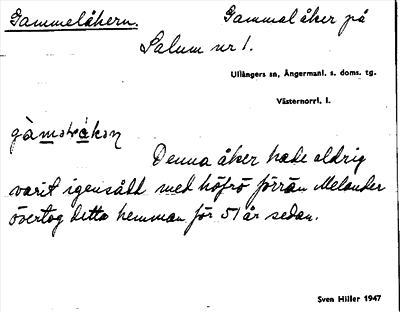 Gammelåkern. Gammal åker på
Salum nr 1.
Ullångers sn, Ångermanl. s. doms. tg.
Västernorrl. l.
Denna åker hade aldrig
varit igensådd med höfrö förrän Melander
övertog detta hemman för 51 år sedan.
Sven Hiller 1947